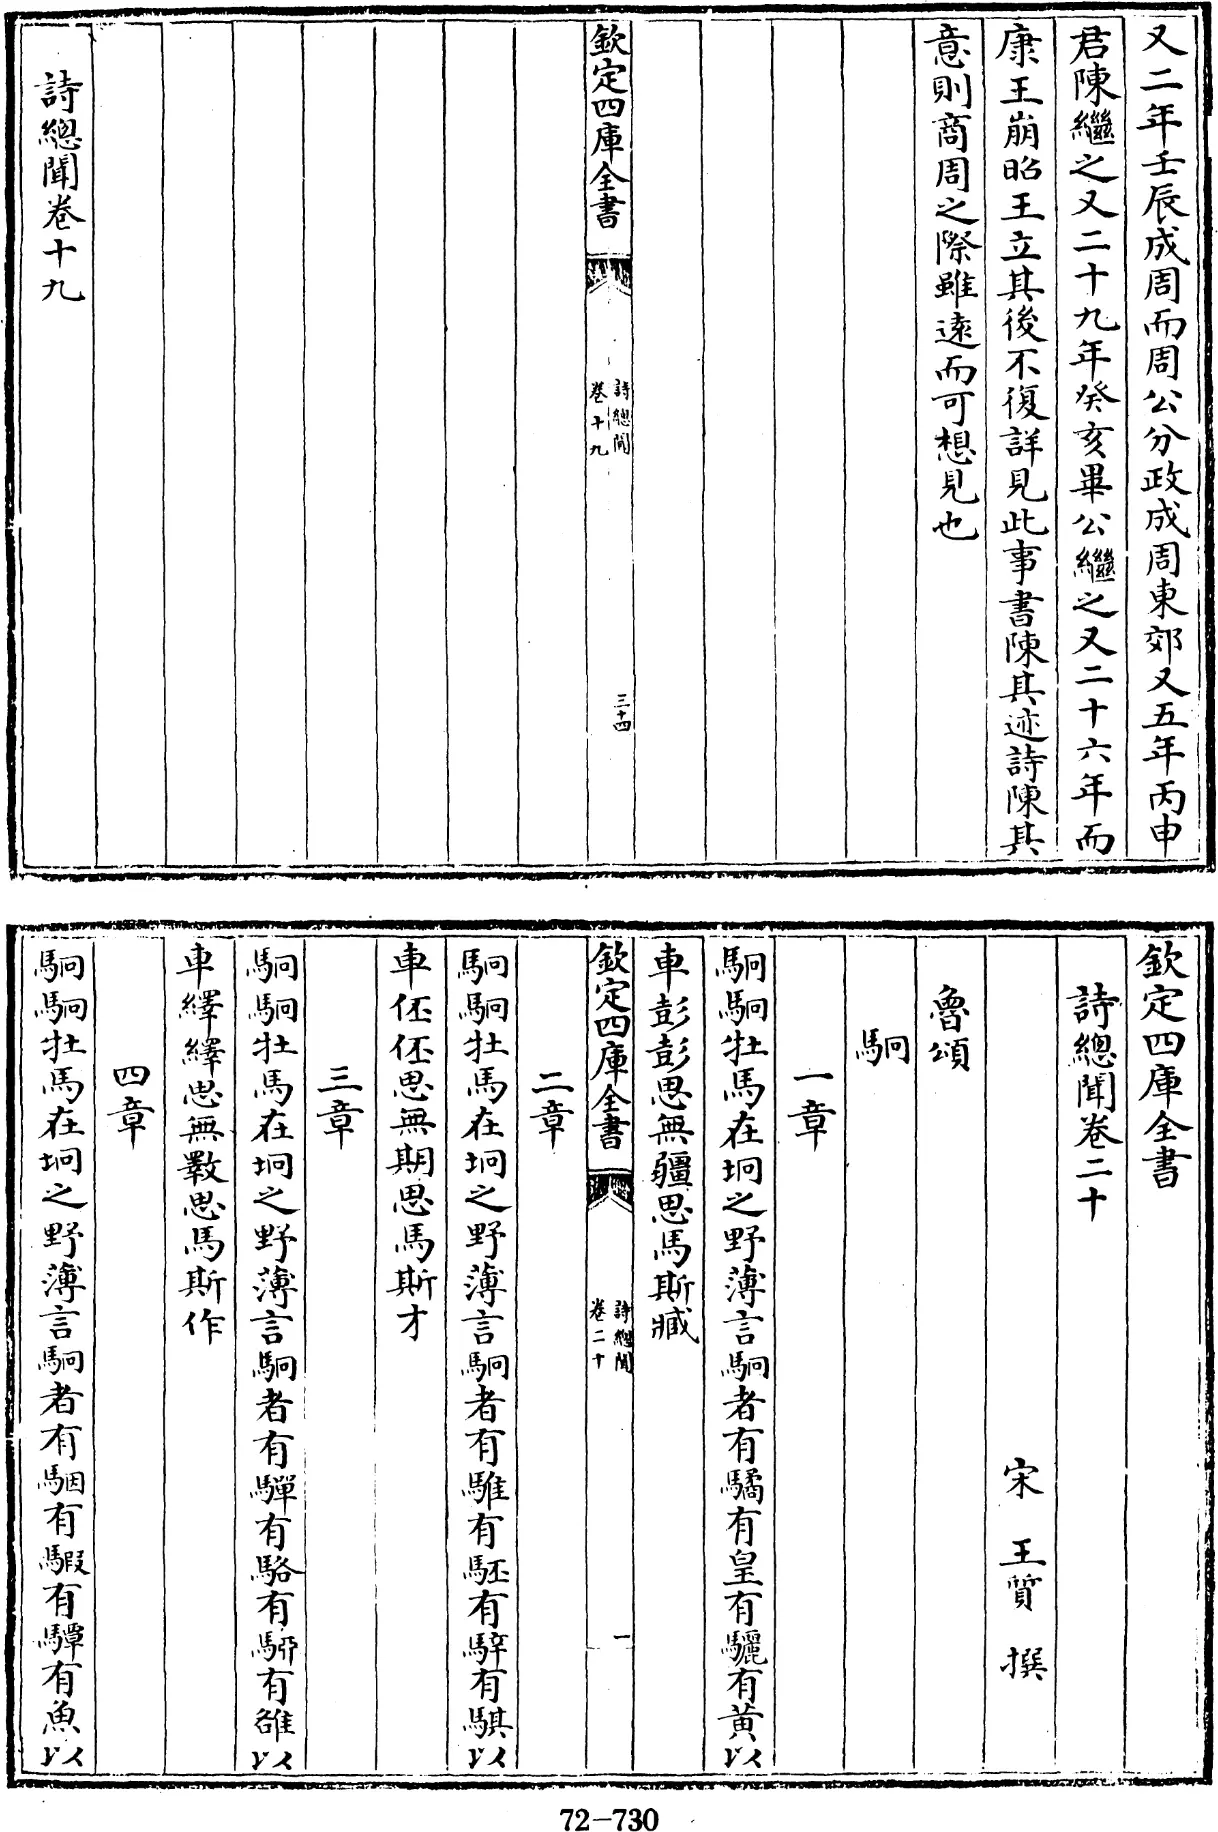 又二年壬辰成周而周公分政成周東郊又五年丙申
君陳繼之又二十九年癸亥畢公繼之又二十六年而
康王崩昭王立其後不復詳見此事書陳其迹詩陳其
意則商周之際雖遠而可想見也
欽定四庫全書
詩總聞
卷十九
三十四
詩總聞卷十九
欽定四庫全書
詩總聞卷二十
宋 王質 撰
魯頌
駉
一章
駉駉牡馬在坰之野薄言駉者有驈有皇有驪有黃以
車彭彭思無疆思馬斯臧
欽定四庫全書
詩總聞
卷二十
一
二章
駉駉牡馬在坰之野薄言駉者有騅有駓有騂有騏以
車伾伾思無期思馬斯才
三章
駉駉牡馬在坰之野薄言駉者有驒有駱有騢有雒以
車繹繹思無斁思馬斯作
四章
駉駉牡馬在坰之野薄言駉者有駰有騢有驔有魚以
72-730